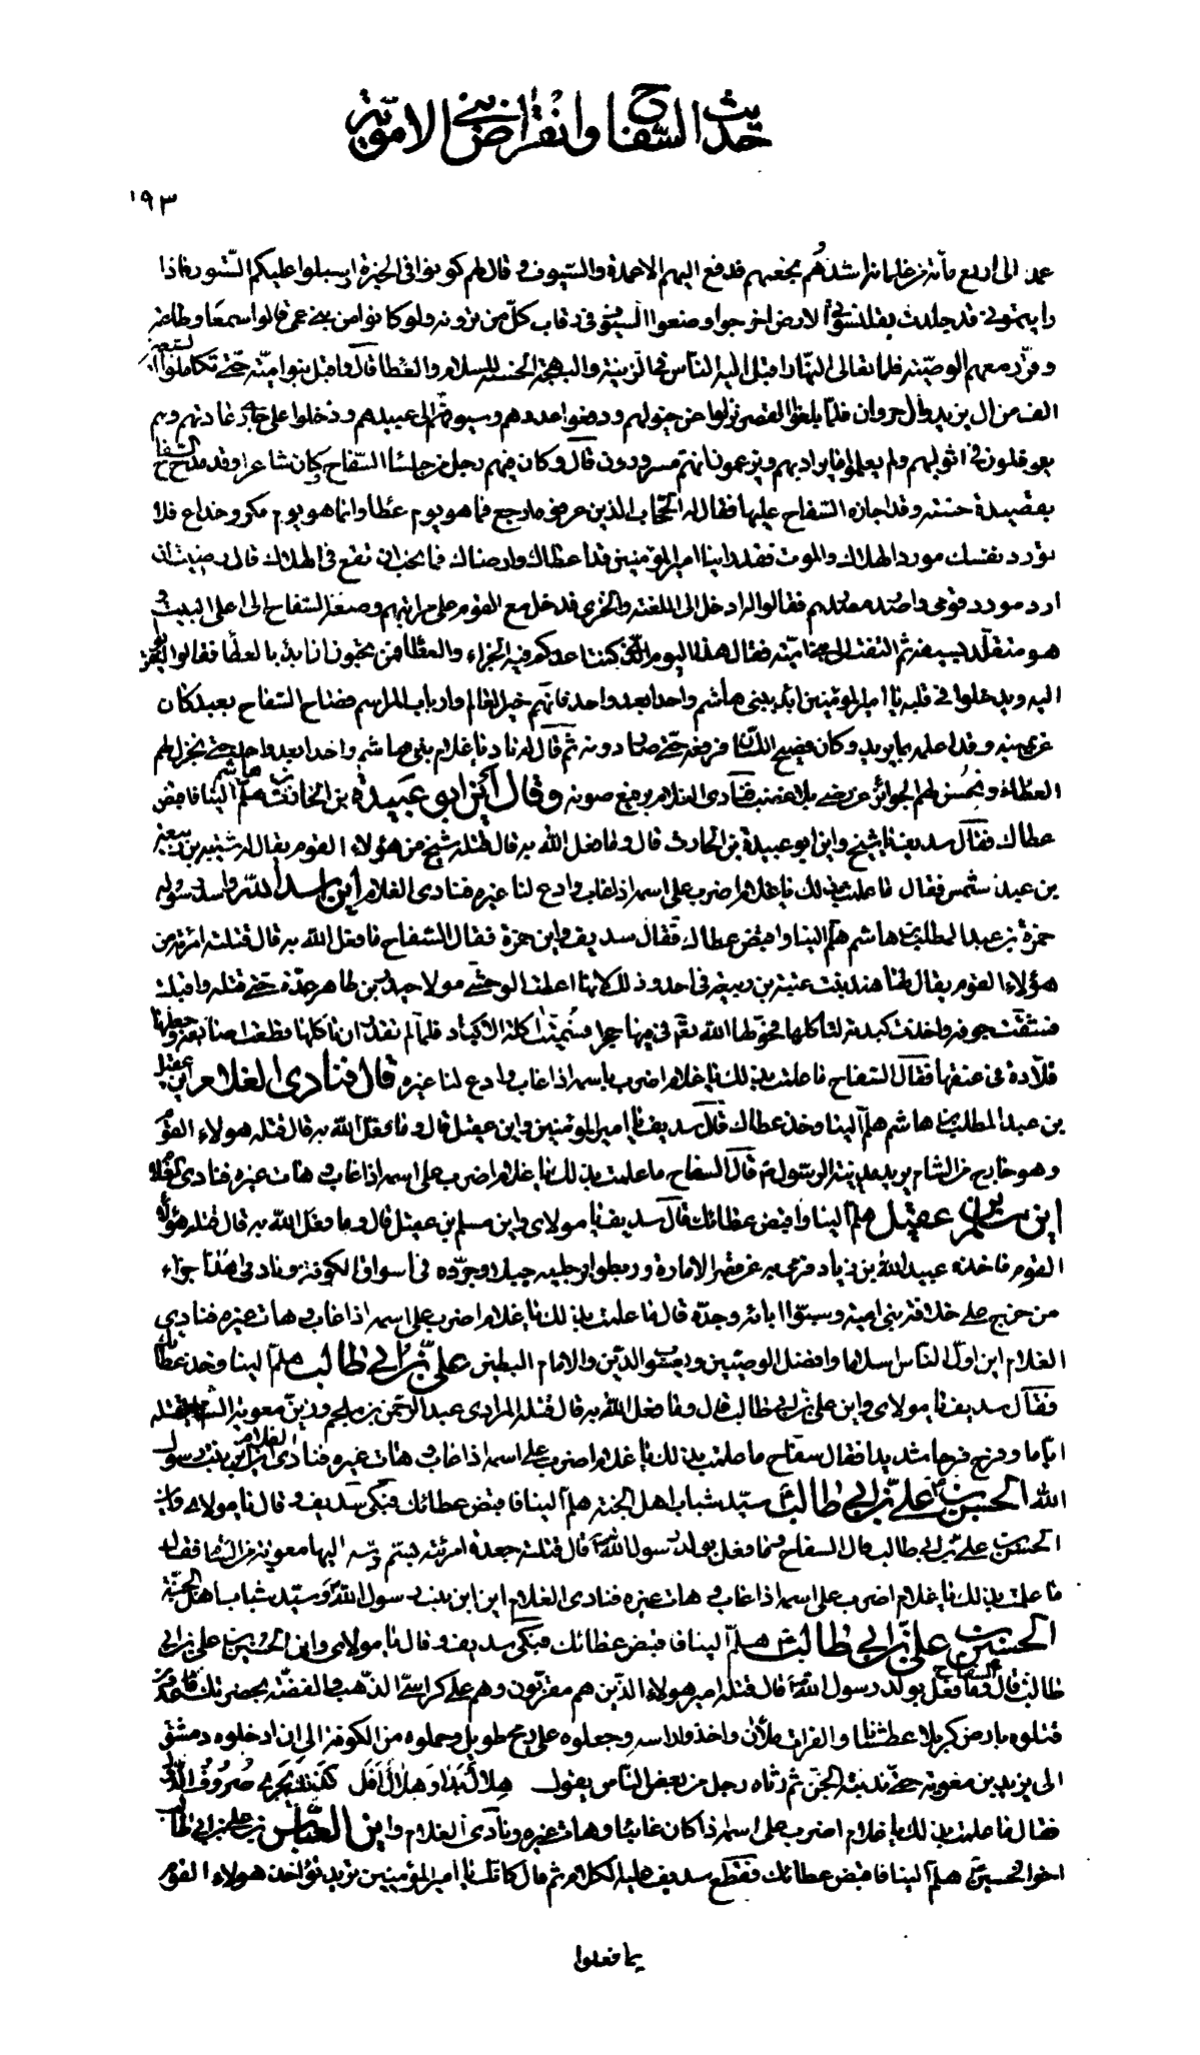 حديث السفاح وانقراض بني الاموية
١٩٣
عمد الى اربع مأة من غلمانه اشدهم بجمعهم فدفع اليهم الاعمدة والسيوف وقال لهم كونوا في الحيزة واسبلوا عليكم الستور فاذا
رايتموني قد جلدت بقلنسوتي الارض اخرجوا وضعوا السيف في رقاب كل من ترونه ولو كانوا من بني عمي قالوا سمعا وطاعة
وقرر معهم الوصية فلما تعالى النهار اقبل اليه الناس في الزينة والبهجة الحسنة للسلام والعطا قال واقبل بنو امية حتى تكاملوا سبعين
الف من ال يزيد وال مروان فلما بلغوا القصر نزلوا عن خيولهم ودفعوا عددهم وسيوفهم الى عبيدهم ودخلوا على عادتهم وهم
يرفلون في اثوابهم ولم يعلموا ما يراد بهم ويزعمون انهم مسرورون قال وكان فيهم رجل من جلسا السفاح وكان شاعرا وقد مدح السفاح
بقصيدة حسنة وقد اجازه السفاح عليها فقال له الحجاب الذين عرفوه ارجع فما هو يوم عطا وانما هو يوم مكر وخداع فلا
تورد نفسك مورد الهلاك والموت فقد راينا امير المؤمنين قد اعطاك وارضاك فما نحب ان تقع في الهلاك قال رضيت ان
ارد مورد قومي واصدر مصدرهم فقالوا له ادخل الى اللعنة والخزي فدخل مع القوم على مراتبهم وصعد السفاح الى اعلى البيت و
هو متقلد بسيفه ثم التفت الى بني امية فقال هذا اليوم الذي كنت اعدكم فيه الجزاء والعطا فمن تحبون ان ابدء بالعطا فقالوا
اليه ويدخلوا في قلبه يا امير المؤمنين ابدء ببني هاشم واحدا بعد واحد فانهم خير العالم وارباب المراسم فصاح السفاح بعبد كان
عن يمينه وقد اعلمه بما يريد وكان فصيح اللسان ثم قال له ناد يا غلام بني هاشم واحدا بعد واحد حتى نجزل لهم
العطاء ونحسن لهم الجوائز فنادى الغلام برفيع صوته وقال اين ابو عبيدة بن الحارث بن هاشم هلم الينا فاقبض
عطاك فقال سديف يا شيخ واين ابو عبيدة بن الحارث قال وما فعل الله به قال قتله شيخ من هؤلاء القوم يقال له شيبة بن ربيعة
بن عبد شمس فقال ما علمت بذلك يا غلام اضرب على اسمه اذا غاب وادع لنا غيره فنادى الغلام اين اسد الله واسد رسوله
حمزة بن عبد المطلب بن هاشم هلم الينا واقبض عطاك فقال سديف واين حمزة فقال السفاح ما فعل الله به قال قتلته امرءة من
هؤلاء القوم يقال لها هند بنت عتبة بن ربيعة في احد وذلك لانها اعطت الوحشي مولا جبير بن حتى قتله واقبلت
فشقت جوفه واخذت كبده لتأكلها فحولها الله تعالى في فيها حجرا فسميت اكلة الاكباد فلما لم تقدر ان تاكلها قطعت اصابعه وجعلتها
قلادة في عنقها فقال السفاح ما علمت بذلك يا غلام اضرب على اسمه اذا غاب وادع لنا غيره قال فنادى الغلام اين عقيل
بن عبد المطلب بن هاشم هلم الينا وخذ عطاك قال سديف يا امير المؤمنين واين عقيل قال وما فعل الله به قال قتله هولاء القوم
وهو خارج من الشام يريد مدينة الرسول قال السفاح ما علمت بذلك يا غلام اضرب على اسمه اذا غاب وهات غيره فنادى الغلام
اين مسلم بن عقيل هلم الينا واقبض عطائك قال سديف يا مولاي واين مسلم بن عقيل قال وما فعل الله به قال قتله هؤلاء
القوم فاخذه عبيد الله بن زياد فرمى به من قصر الامارة وربطوا برجليه حبلا وجروه في اسواق الكوفة ونادى هذا جزاء
من خرج على خلافة بني امية وسبوا ابائه وجده قال ما علمت بذلك يا غلام اضرب على اسمه اذا غاب وهات غيره فنادى
الغلام اين اول الناس اسلاما وافضل الوصيين ويعسوب الدين والامام البطين علي بن ابي طالب هلم الينا وخذ عطائك
فقال سديف يا مولاي واين علي بن ابي طالب قال وما فعل الله به قال قتله المرادي عبد الرحمن بن ملجم وزين معوية الشام لقتله
اياما وفرح فرحا شديدا فقال سفاح ما علمت بذلك يا غلام اضرب على اسمه اذا غاب وهات غيره فنادى الغلام اين ابن بنت رسول
الله الحسن بن علي بن ابي طالب سيد شباب اهل الجنة هلم الينا فاقبض عطائك فبكى سديف وقال يا مولاي واين
الحسن بن علي بن ابي طالب قال السفاح وما فعل بولد رسول الله قال قتلته جعدة امرئته بسم دسه اليها معوية من الشام فقال
ما علمت بذلك يا غلام اضرب على اسمه اذا غاب وهات غيره فنادى الغلام اين ابن بنت رسول الله وسيد شباب اهل الجنة
الحسين بن علي بن ابي طالب هلم الينا فاقبض عطائك فبكى سديف وقال يا مولاي واين الحسين بن علي بن ابي
طالب قال السفاح وما فعل بولد رسول الله قال قتله امير هولاء الذين هم مقربون وهم على كراسي الذهب والفضة بحضرتك
قتلوه بارض كربلا عطشانا والفرات ملأن واخذوا راسه وجعلوه على رمح طويل وحملوه من الكوفة الى ان ادخلوه دمشق
الى يزيد بن معوية ثم رثاه رجل من بعض الناس يقول
فقال ما علمت بذلك يا غلام اضرب على اسمه اذا كان غائبا وهات غيره ونادى الغلام واين العباس بن علي بن ابي طالب
اخو الحسين هلم الينا فاقبض عطائك فقطع سديف عليه الكلام ثم قال يا امير المؤمنين تريد تؤاخذ هولاء القوم
بما فعلوا